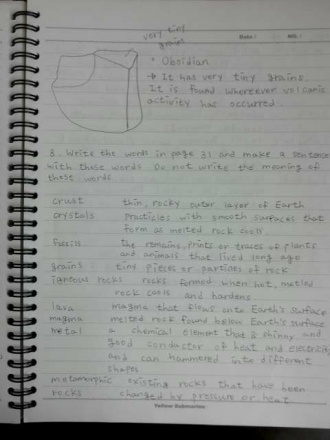 very tiny
grain
Date :
NO. :
• Obsidian
→ It has very tiny grains.
It is found whereever volcanic
activity has occurred.
3. Write the words in page 31 and make a sentence
with those words. Do not write the meaning of
those words
crust thin, rocky outer layer of Earth
crystals practicles with smooth surfaces that
form as melted rock cools
Fossils the remains, prints or traces of plants
and animals that lived long ago
grains tiny pieces or particles of rock
igneous rocks rocks formed when hot, melted
rock cools and hardens
lava magma that flows onto Earth's surface
magma melted rock found below Earth's surface
metal a chemical element that is shinny and
good conductor of heat and electricity
and can hammered into different
shapes
metamorphic existing rocks that have been
rocks changed by pressure or heat
Yellow Submarine